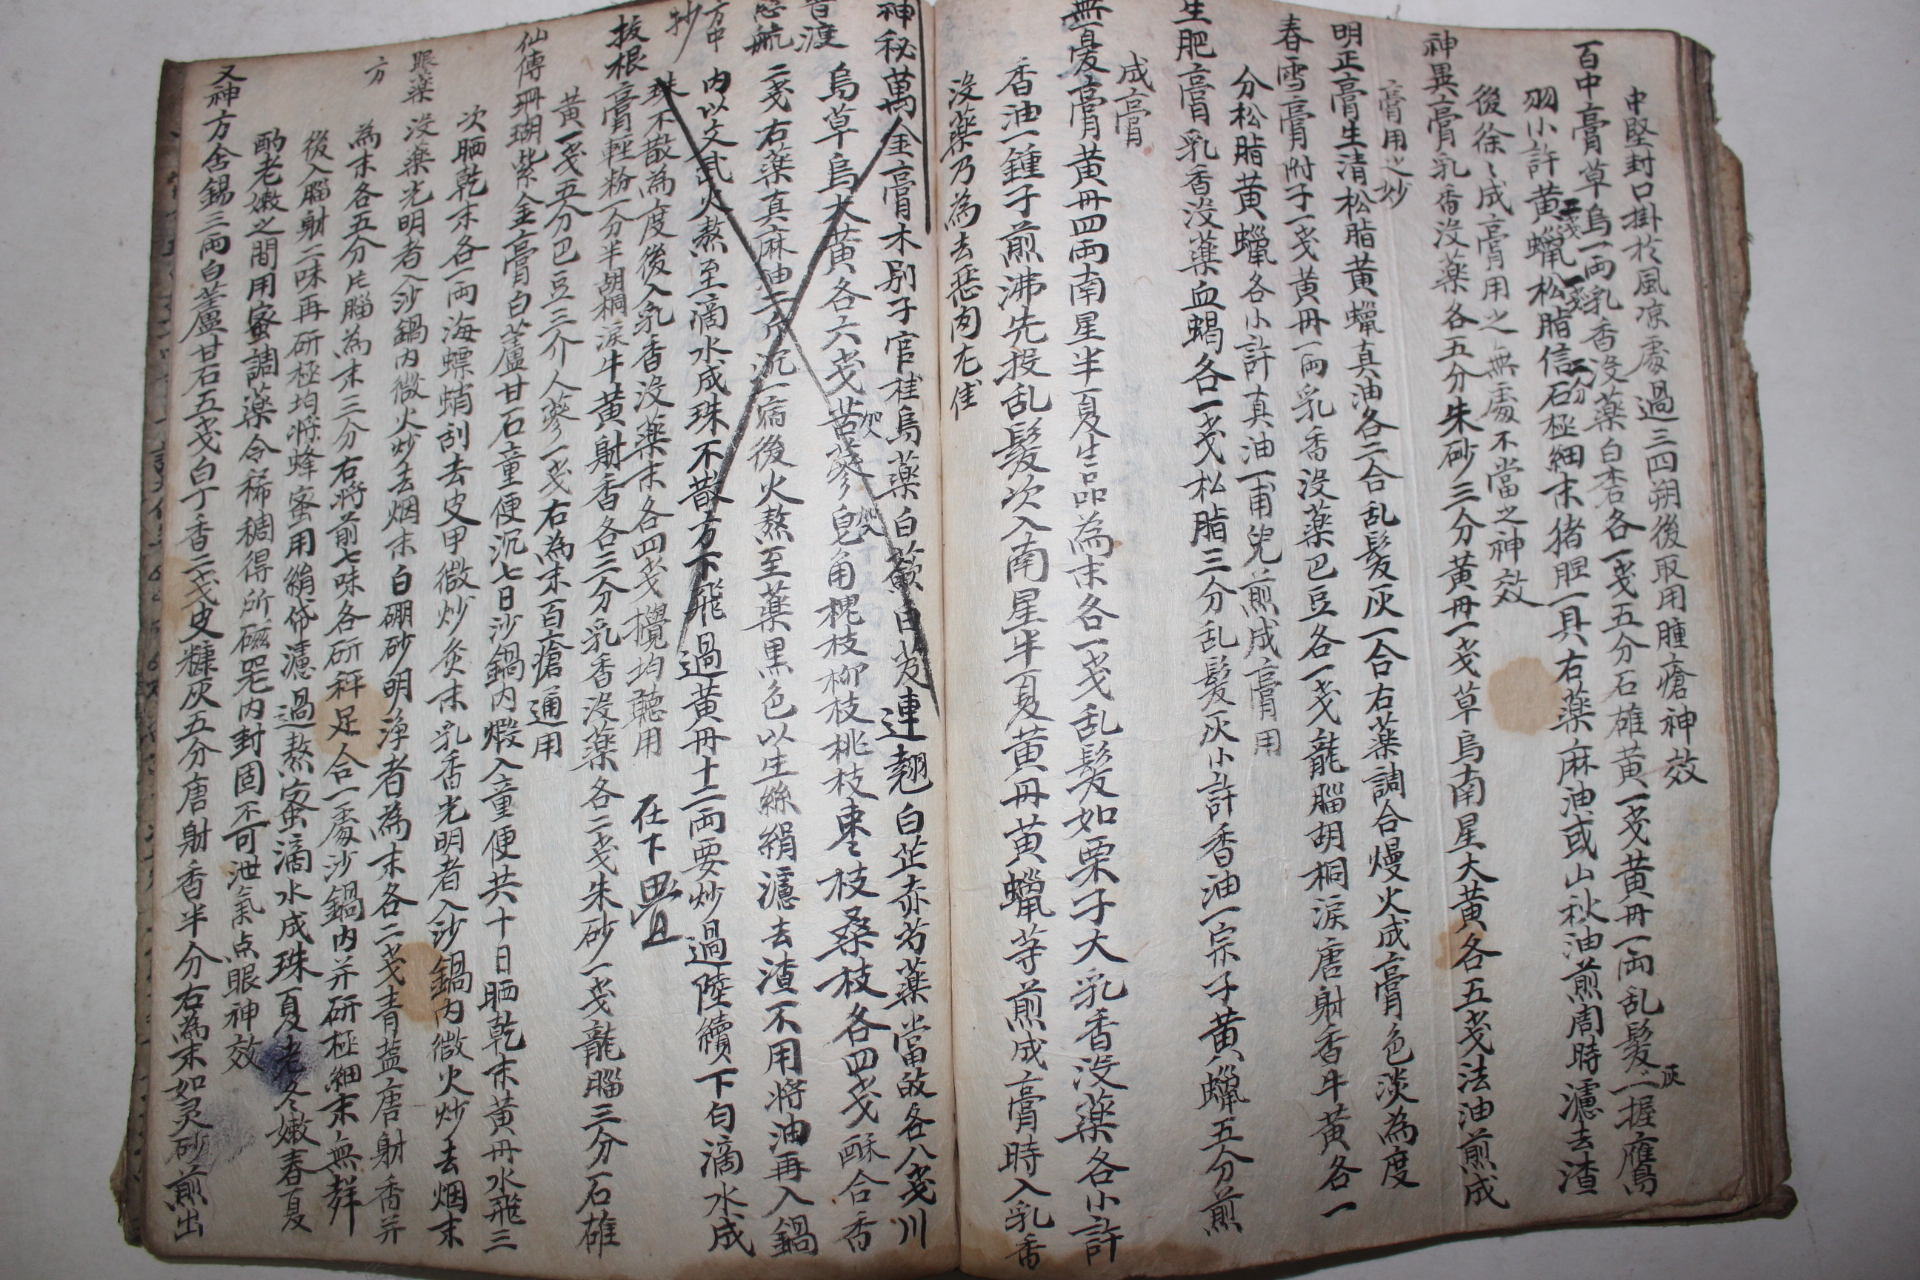 中堅封口掛於風凉處過三四朔後取用腫瘡神效
百中膏草烏一兩乳香没藥白枣各一戔五分石雄黄一戔黄丹一兩乱髮灰一握鷹
羽小許黄蠟二戔松脂一戔信石二分極細末猪胆一具右藥麻油或山秋油煎周時濾去渣
後徐〻成膏用之無處不當之神效
神異膏乳香没藥各五分朱砂三分黄丹一戔草烏南星大黄各五戔法油煎成
膏用之妙
明正膏生清松脂黄蠟真油各二合乱髮灰一合右藥調合熳火成膏色淡為度
春雪膏附子一戔黄丹一兩乳香没藥巴豆各一戔龍腦胡桐淚唐射香牛黄各一
分松脂黄蠟各小許真油一甫兒煎成膏用
生肥膏乳香没藥血蝎各一戔松脂三分乱髮灰小許香油一宗子黄蠟五分煎
成膏
無憂膏黄丹四兩南星半夏生品為末各一戔乱髮如栗子大乳香没藥各小許
香油一鍾子煎沸先投乱髮次入南星半夏黄丹黄蠟等煎成膏時入乳香
没藥乃為去惡肉尤佳
神秘萬金膏木別子官桂烏藥白蘞白芨連翹白芷赤芍藥當故各八戔川
烏草烏大黄各六戔苦蔘皂角槐枝柳枝桃枝棗枝桑枝各四戔酥合香
二戔右藥真麻油二斤沉一宿後火熬至藥黒色以生絲絹濾去渣不用將油再入鍋
内以文武火熬至滴水成珠不散方下飛過黄丹十二兩要炒過陸續下自滴水成
珠不散為度後入乳香没藥末各四戔攪均聽用
在下疊
拔根膏輕粉一分半胡桐淚牛黄射香各三分乳香没藥各二戔朱砂一戔龍腦三分石雄
黄一戔五分巴豆三介人蔘一戔右為末百瘡通用
仙傳珊瑚紫金膏白荃蘆甘石童便沉七日沙鍋内煅入童便共十日晒乾末黄丹水飛三
次晒乾末各一兩海螵蛸刮去皮甲微炒灸末乳香光明者入沙鍋内微火炒去烟末
眼藥没藥光明者入沙鍋内微火炒去烟末白硼砂明净者為末各二戔青盐唐射香并
方為末各五分片腦為末三分右將前七味各研秤足合一處沙鍋内并研極細末無群
後入腦射二味再研極均將蜂蜜用絹帒濾過熬蜜滴水成珠夏老冬嫩春夏
酌老嫩之間用蜜調藥令稀稠得所磁器内封固不可泄氣点眼神效
又神方含錫三兩白荃蘆甘石五戔白丁香二戔皮糠灰五分唐射香半分右為末如灵砂煎出